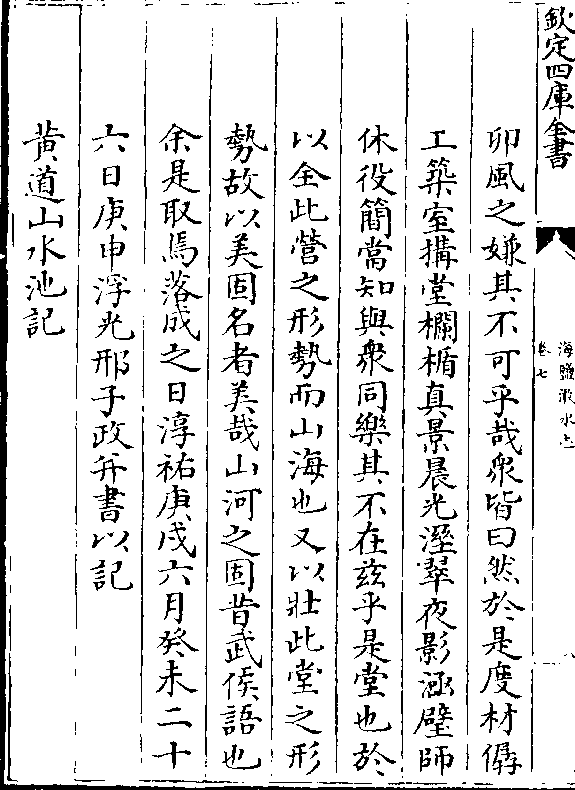 欽定四庫全書
海鹽澉水志
卷七
八
卯風之嫌其不可乎哉衆皆曰然於是度材僝
工築室搆堂欄楯真景晨光溼翠夜影涵壁師
休役簡當知與衆同樂其不在兹乎是堂也於
以全此營之形勢而山海也又以壯此堂之形
勢故以美固名者美哉山河之固昔武侯語也
余是取焉落成之日淳祐庚戌六月癸未二十
六日庚申浮光邢子政并書以記
黄道山水池記